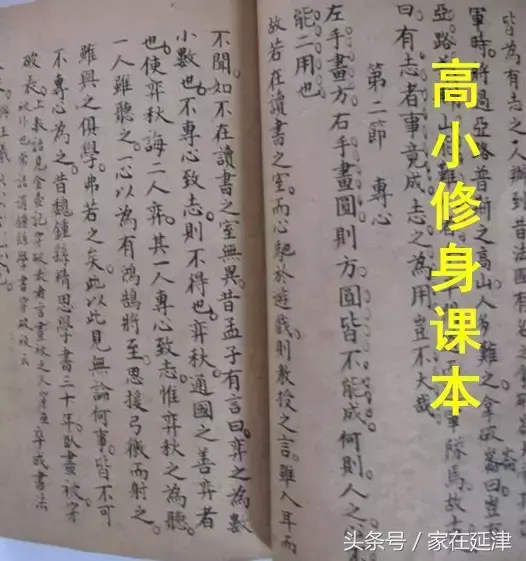 皆為有志之人辦到昔法國有
軍時所過亞路普斯之高山人難之拿破崙曰豈
亞路山難軍隊馬故
曰有志者事竟成志之為用豈不大哉
第二節 專心
左手畫方右手畫圓則方圓皆不能成何則人之心
能二用也
故若在讀書之室而心馳於遊戲則教授之言雖入耳而
不聞如不在讀書之室無異昔孟子有言曰弈之為數
小數也不專心致志則不得也弈秋通國之善弈者
也使弈秋誨二人弈其一人專心致志惟弈秋之為聽
一人雖聽之一心以為有鴻鵠將至思援弓繳而射之
雖與之俱學弗若之矣此以此見無論何事皆不可
不專心為之昔魏鍾繇精思學書三十年臥畫被穿
高小修身课本
头条号 / 家在延津